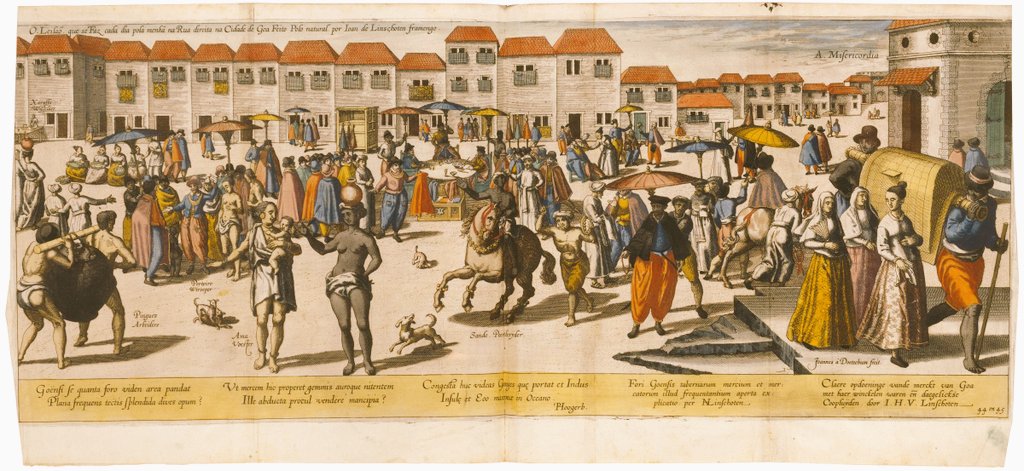 O Leilao que se Faz cada dia pola menhã na Rua direita na Cidade de Goa Feito Polo natural por Ioan de Linschoten framengo
A. Misericordia
Porteiro
Wtroeper
Piaguets
Arbeiders
Ama
Voester
Sandt Peerdtryder
Joannes à Doetechum fecit
Goënsi se quanta foro viden area pandat
Plana frequens tectis splendida dives opum?
Vt mercem huc properet gemmis auroque nitentem
Ille abducta procul vendere mancipia?
Congesta huc videas Ganges quæ portat et Indus
Insulæ et Eoo manne in Oceano
Hoogerb.
Fori Goensis tabernarum mercium et mer-
catorum illud frequentantium aperta ex
plicatio per N. Linschoten
Claere opdeeninge vande merckt van Goa
met haer winckelen waren en̄ daegelickse
Cooplieden door I.H.V. Linschoten
44 en 45